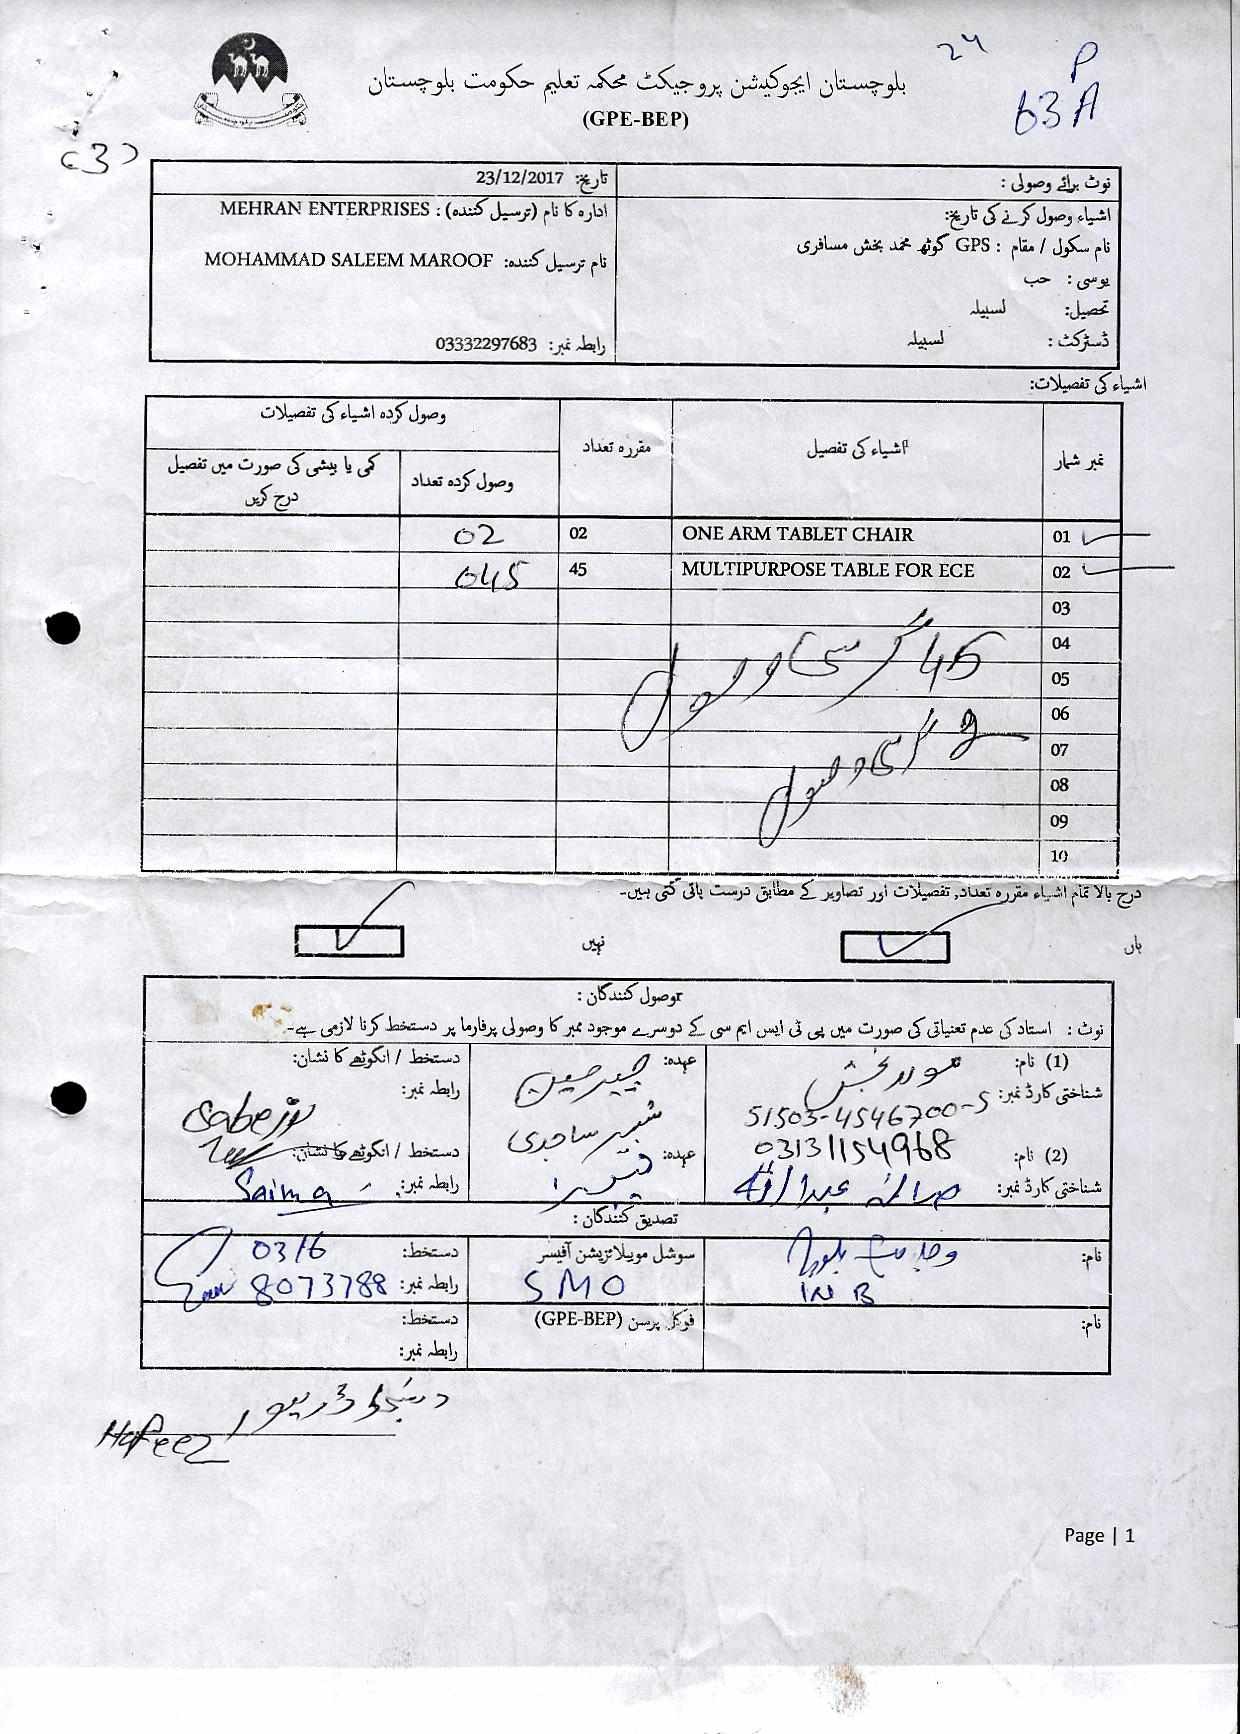 24
P
63 A
(3)
بلوچستان ایجوکیشن پروجیکٹ محکمہ تعلیم حکومت بلوچستان
(GPE-BEP)
نوٹ برائے وصولی :
تاریخ: 23/12/2017
اشیاء وصول کرنے کی تاریخ:
نام سکول / مقام : GPS گوٹھ محمد بخش مسافری
یوسی : حب
تحصیل: لسبیلہ
ڈسٹرکٹ : لسبیلہ
ادارہ کا نام (ترسیل کنندہ) : MEHRAN ENTERPRISES
نام ترسیل کنندہ: MOHAMMAD SALEEM MAROOF
رابطہ نمبر: 03332297683
اشیاء کی تفصیلات:
نمبر شمار اشیاء کی تفصیل مقررہ تعداد وصول کردہ اشیاء کی تفصیلات
وصول کردہ تعداد کمی یا بیشی کی صورت میں تفصیل درج کریں
01 ONE ARM TABLET CHAIR 02 02
02 MULTIPURPOSE TABLE FOR ECE 45 045
03
04
05
06
07
08
09
10
45 کرسی وصول
2 کرسی وصول
درج بالا تمام اشیاء مقررہ تعداد, تفصیلات اور تصاویر کے مطابق درست پائی گئی ہیں۔
ہاں نہیں
وصول کنندگان :
نوٹ : استاد کی عدم تعیناتی کی صورت میں پی ٹی ایس ایم سی کے دوسرے موجود ممبر کا وصولی پرفارما پر دستخط کرنا لازمی ہے۔
(1) نام: عہدہ: چیرمین دستخط / انگوٹھے کا نشان:
شناختی کارڈ نمبر: 51503-4546700-5 رابطہ نمبر:
03131154968
شبیر ساجدی
(2) نام: عہدہ: دستخط / انگوٹھے کا نشان:
شناختی کارڈ نمبر: صائمہ عبداللہ رابطہ نمبر: Saima
تصدیق کنندگان :
نام: سوشل موبیلائزیشن آفیسر دستخط: 0316
SMO رابطہ نمبر: 8073788
نام: فوکل پرسن (GPE-BEP) دستخط:
رابطہ نمبر:
دستخط ڈریور
Hafeez
Page | 1